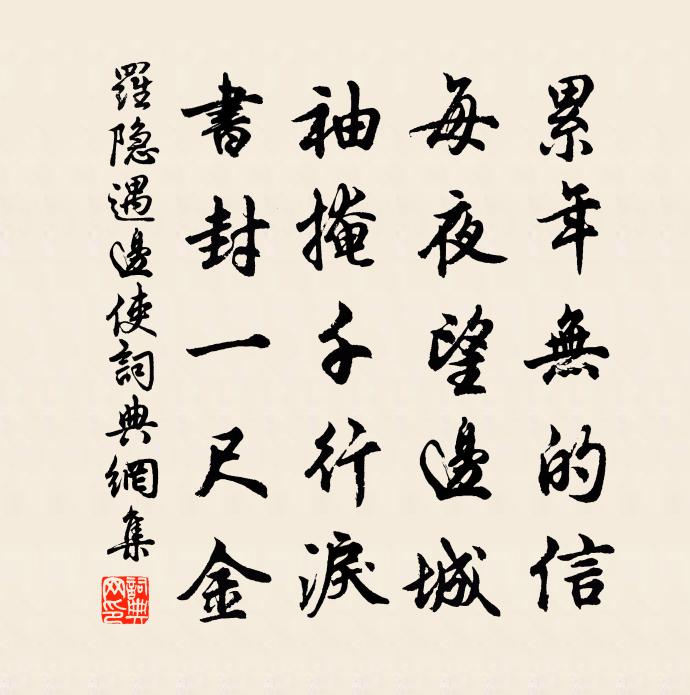 累年無的信
每夜望邊城
袖掩千行淚
書封一尺金
羅隐遇邊使詞典網集
詞典網印